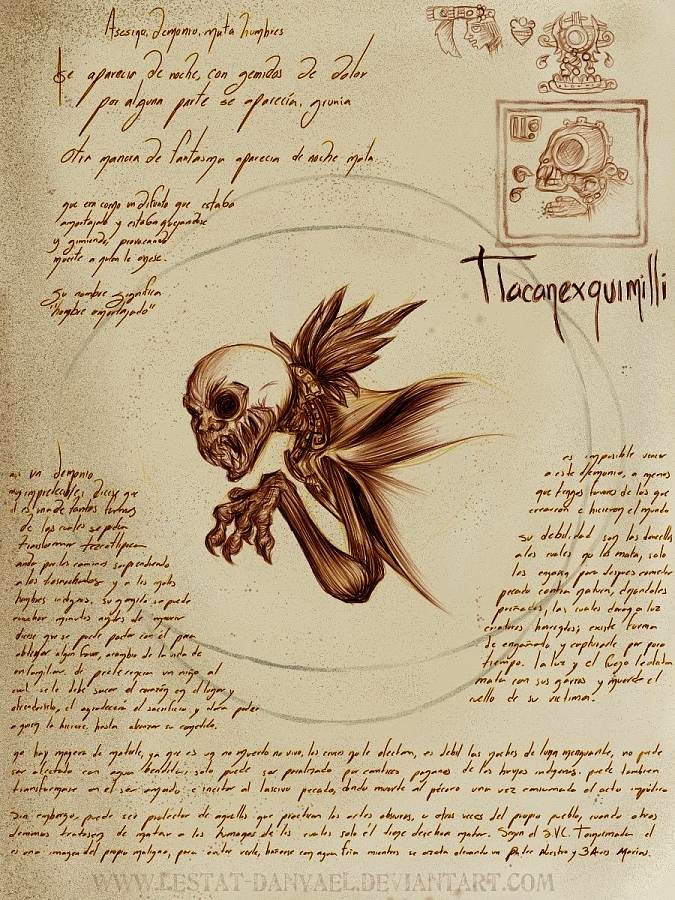 Asesino, demonio, mata hombres
Se aparecia de noche, con gemidos de dolor
por alguna parte se aparecía, grunia
Otra manera de fantasma aparecia de noche mata
que era como un difunto que estaba
amortajado y estaba quejandose
y gimiendo, provocando
muerte a quien le oyese.
Su nombre significa
"hombre amortajado"
Tlacanexquimilli
es un demonio
muy impredecible, dicese que
el es una de tantas formas
de las cuales se podia
transformar tezcatlipoca
anda por los caminos sorprendiendo
a los trasnochados y a los malos
hombres indignos. su gemido se puede
escuchar minutos antes de
dicese que se puede pactar con él para
obtener algun favor, a cambio de la vida de
un familiar. de preferencia un niño al
cual se le debe sacar el corazón en el lugar y
ofrendarselo, el agradecera el sacrificio y dara poder
a quien lo hiciere, hasta alcanzar su cometido.
es imposible vencer
a este demonio, a menos
que tengas favores de los que
crearon e hicieron el mundo
su debilidad son las doncellas
a las cuales no la mata, solo
las engaña para despues cometer
pecado contra natura, dejandolas
preñadas, las cuales daran a luz
criaturas horrendas; existe forma
de engañarlo y capturarle por poco
tiempo. la luz y el fuego le dañan
mata con sus garras y muerde el
cuello de su victima.
no hay manera de matarle, ya que es un no muerto no vivo, las cruces no le afectan, es debil las noches de luna menguante, no puede
ser afectado con agua bendita; solo puede ser penalizado por canticos paganos de los brujos indigenas. puede tambien
transformarse en el ser amado e incitar al lascivo pecado, dando muerte al pecaro una vez consumado el acto impúdico
Sin embargo, puede ser protector de aquellos que practican las artes obscuras, u otras veces del propio pueblo, cuando otros
demonios tratasen de matar a los humanos de los cuales solo él tiene derecho a matar. Segun el S.V.C. Torquemada el
es una imagen del propo maligno, para evitar verle, bañarse con agua fria mientras se azota orando un Padre Nuestro y 3 Aves Marias.
WWW.LESTAT-DANYAEL.DEVIANTART.COM